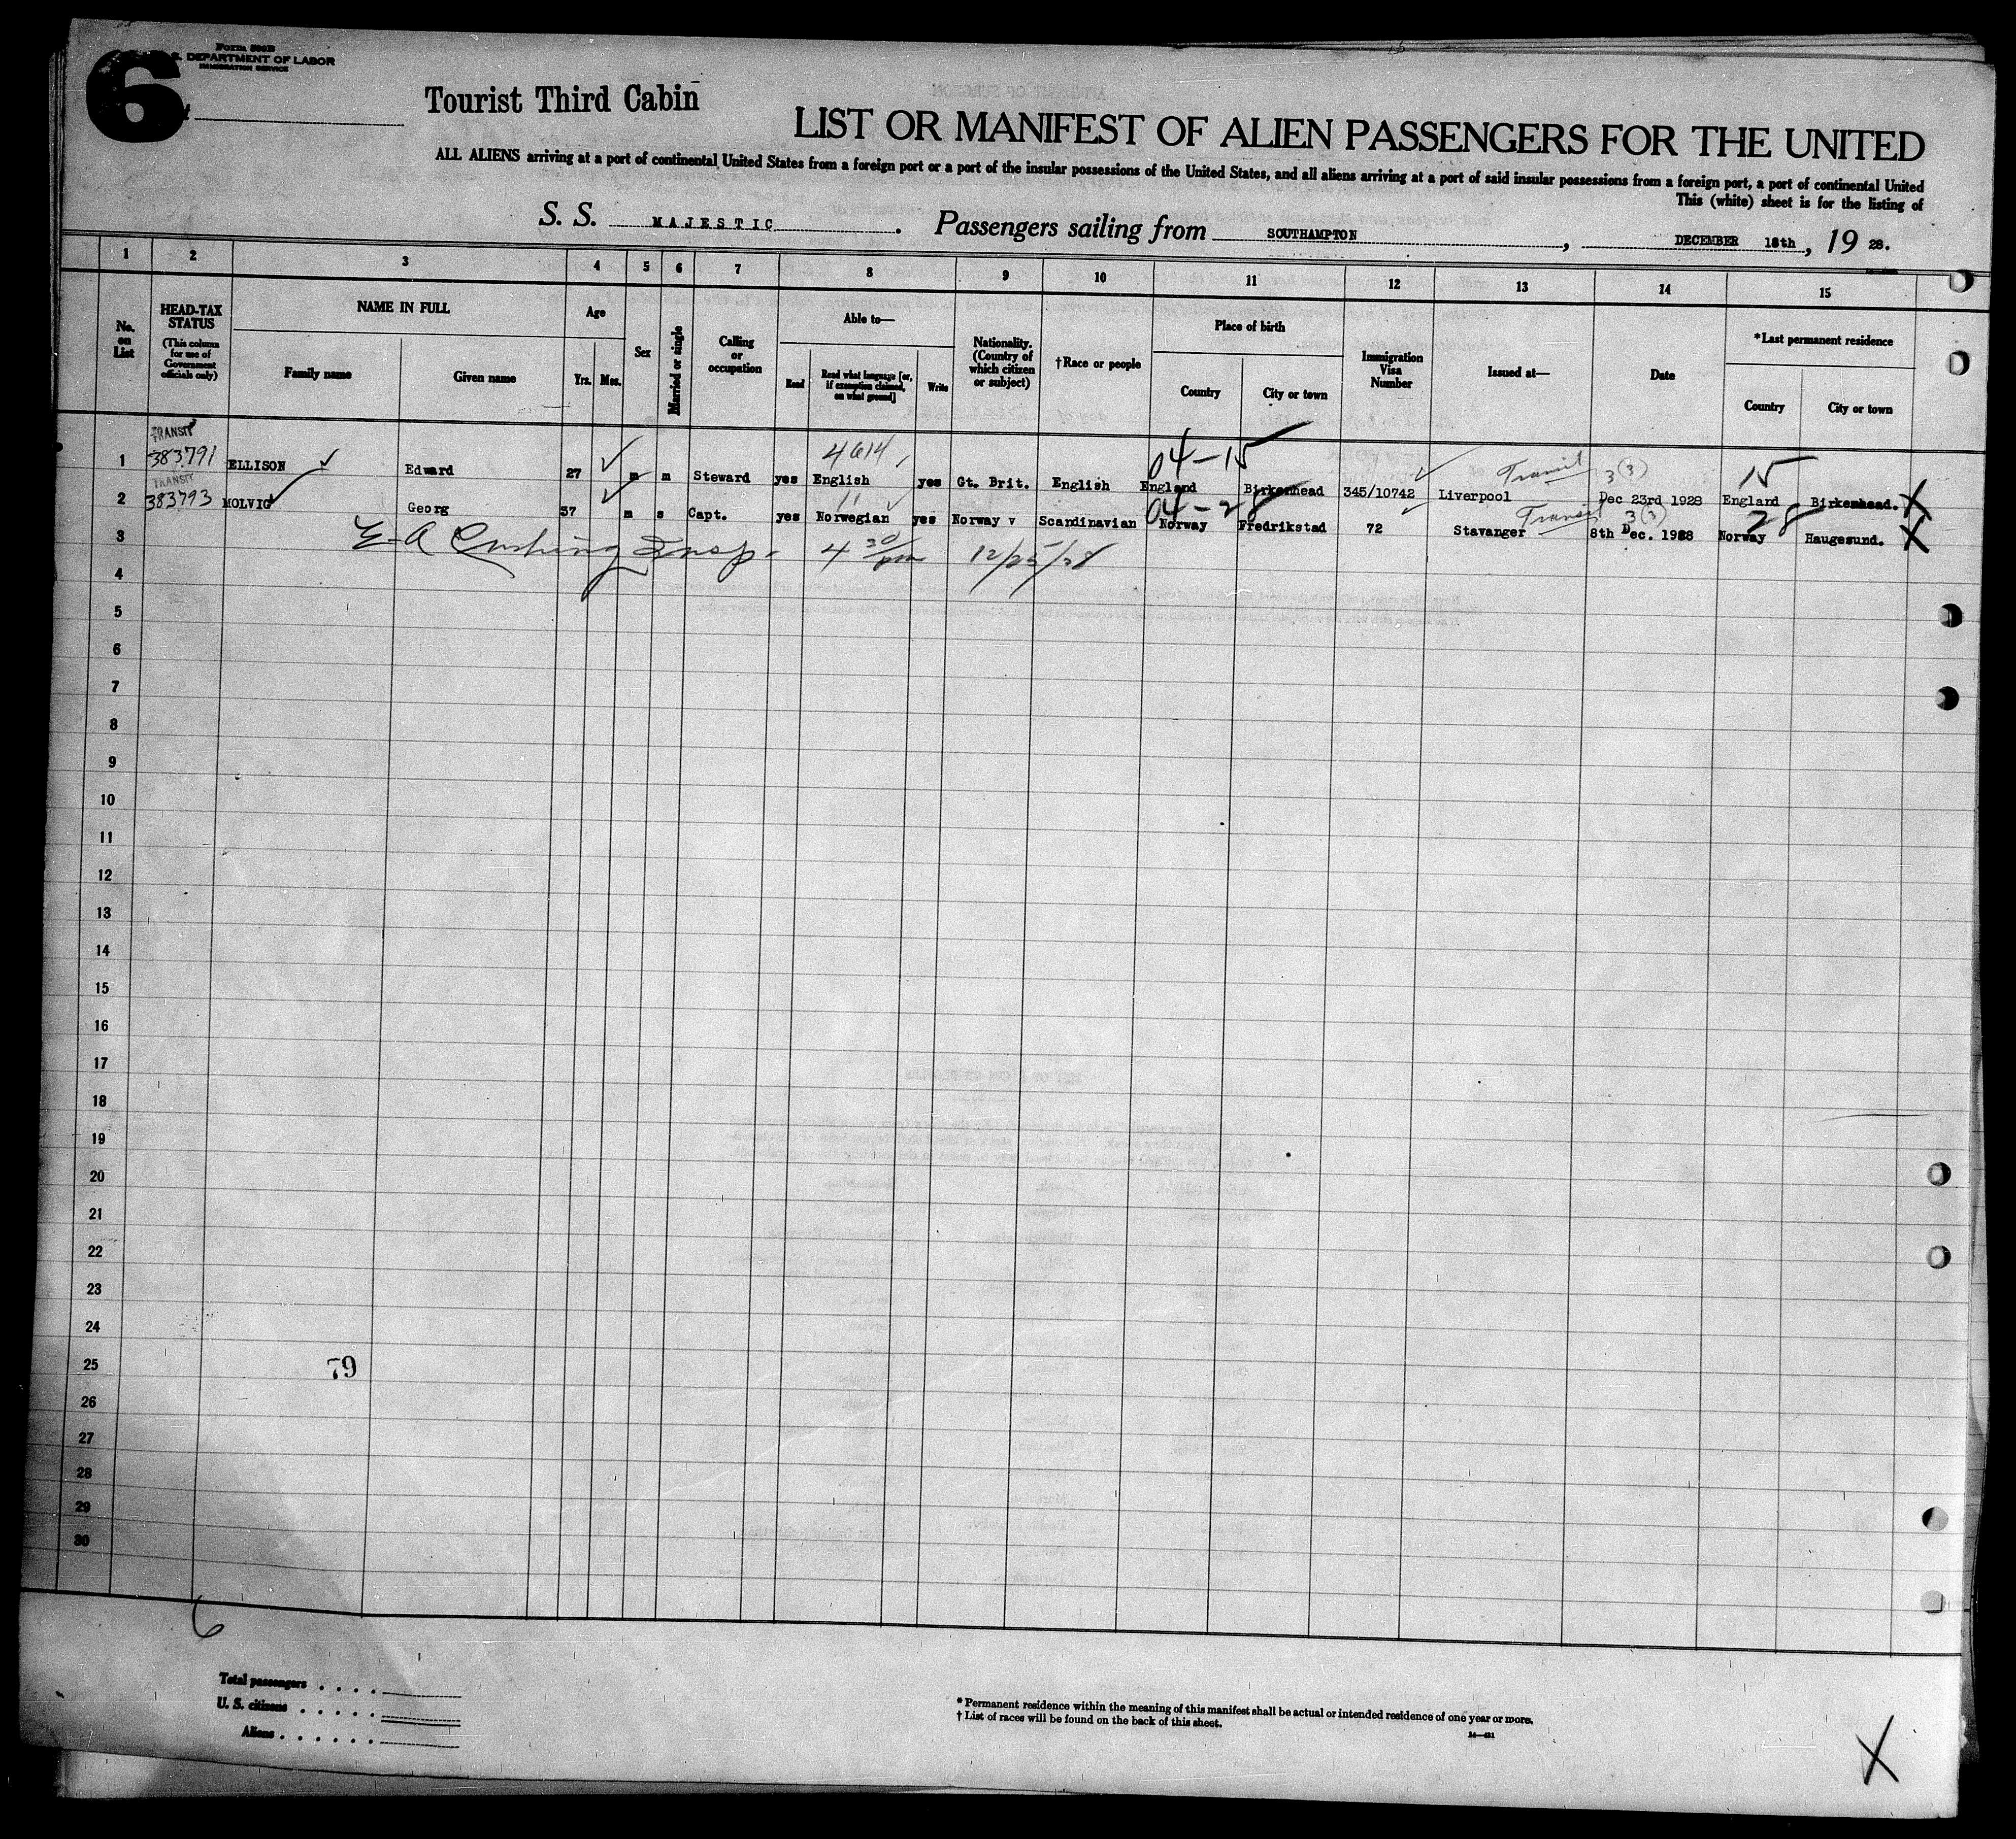 6
Form 500B
U. S. DEPARTMENT OF LABOR
IMMIGRATION SERVICE
Tourist Third Cabin
LIST OR MANIFEST OF ALIEN PASSENGERS FOR THE UNITED
ALL ALIENS arriving at a port of continental United States from a foreign port or a port of the insular possessions of the United States, and all aliens arriving at a port of said insular possessions from a foreign port, a port of continental United
This (white) sheet is for the listing of
S. S. MAJESTIC. Passengers sailing from SOUTHAMPTON, DECEMBER 18th, 19 28.
1 2 3 4 5 6 7 8 9 10 11 12 13 14 15
No. on List
HEAD-TAX STATUS
(This column for use of Government officials only)
NAME IN FULL
Family name
Given name
Age
Yrs. Mos.
Sex
Married or single
Calling or occupation
Able to—
Read
Read what language [or, if exemption claimed, on what ground]
Write
Nationality. (Country of which citizen or subject)
†Race or people
Place of birth
Country
City or town
Immigration Visa Number
Issued at—
Date
*Last permanent residence
Country
City or town
TRANSIT 4614 04-15 Transit 3(3) 15
1 383791 ELLISON Edward 27 m m Steward yes English yes Gt. Brit. English England Birkenhead 345/10742 Liverpool Dec 23rd 1928 England Birkenhead. X
TRANSIT 11 04-28 Transit 3(3) 28
2 383793 MOLVIG Georg 37 m s Capt. yes Norwegian yes Norway v Scandinavian Norway Fredrikstad 72 Stavanger 8th Dec. 1928 Norway Haugesund. X
3 E-A Cushing Insp. 4 30/pm 12/25/28
4
5
6
7
8
9
10
11
12
13
14
15
16
17
18
19
20
21
22
23
24
25 79
26
27
28
29
30
6
Total passengers . . . .
U. S. citizens . . . . .
Aliens . . . . . .
* Permanent residence within the meaning of this manifest shall be actual or intended residence of one year or more.
† List of races will be found on the back of this sheet.
X